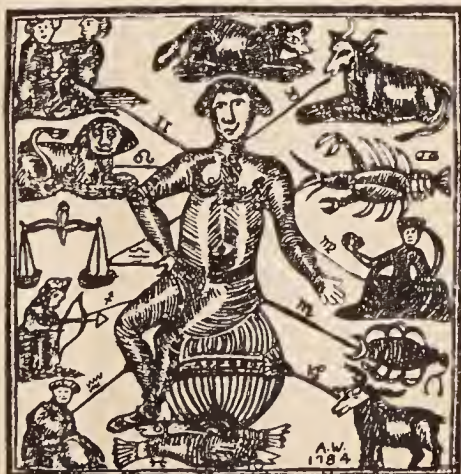 A.W.
1784